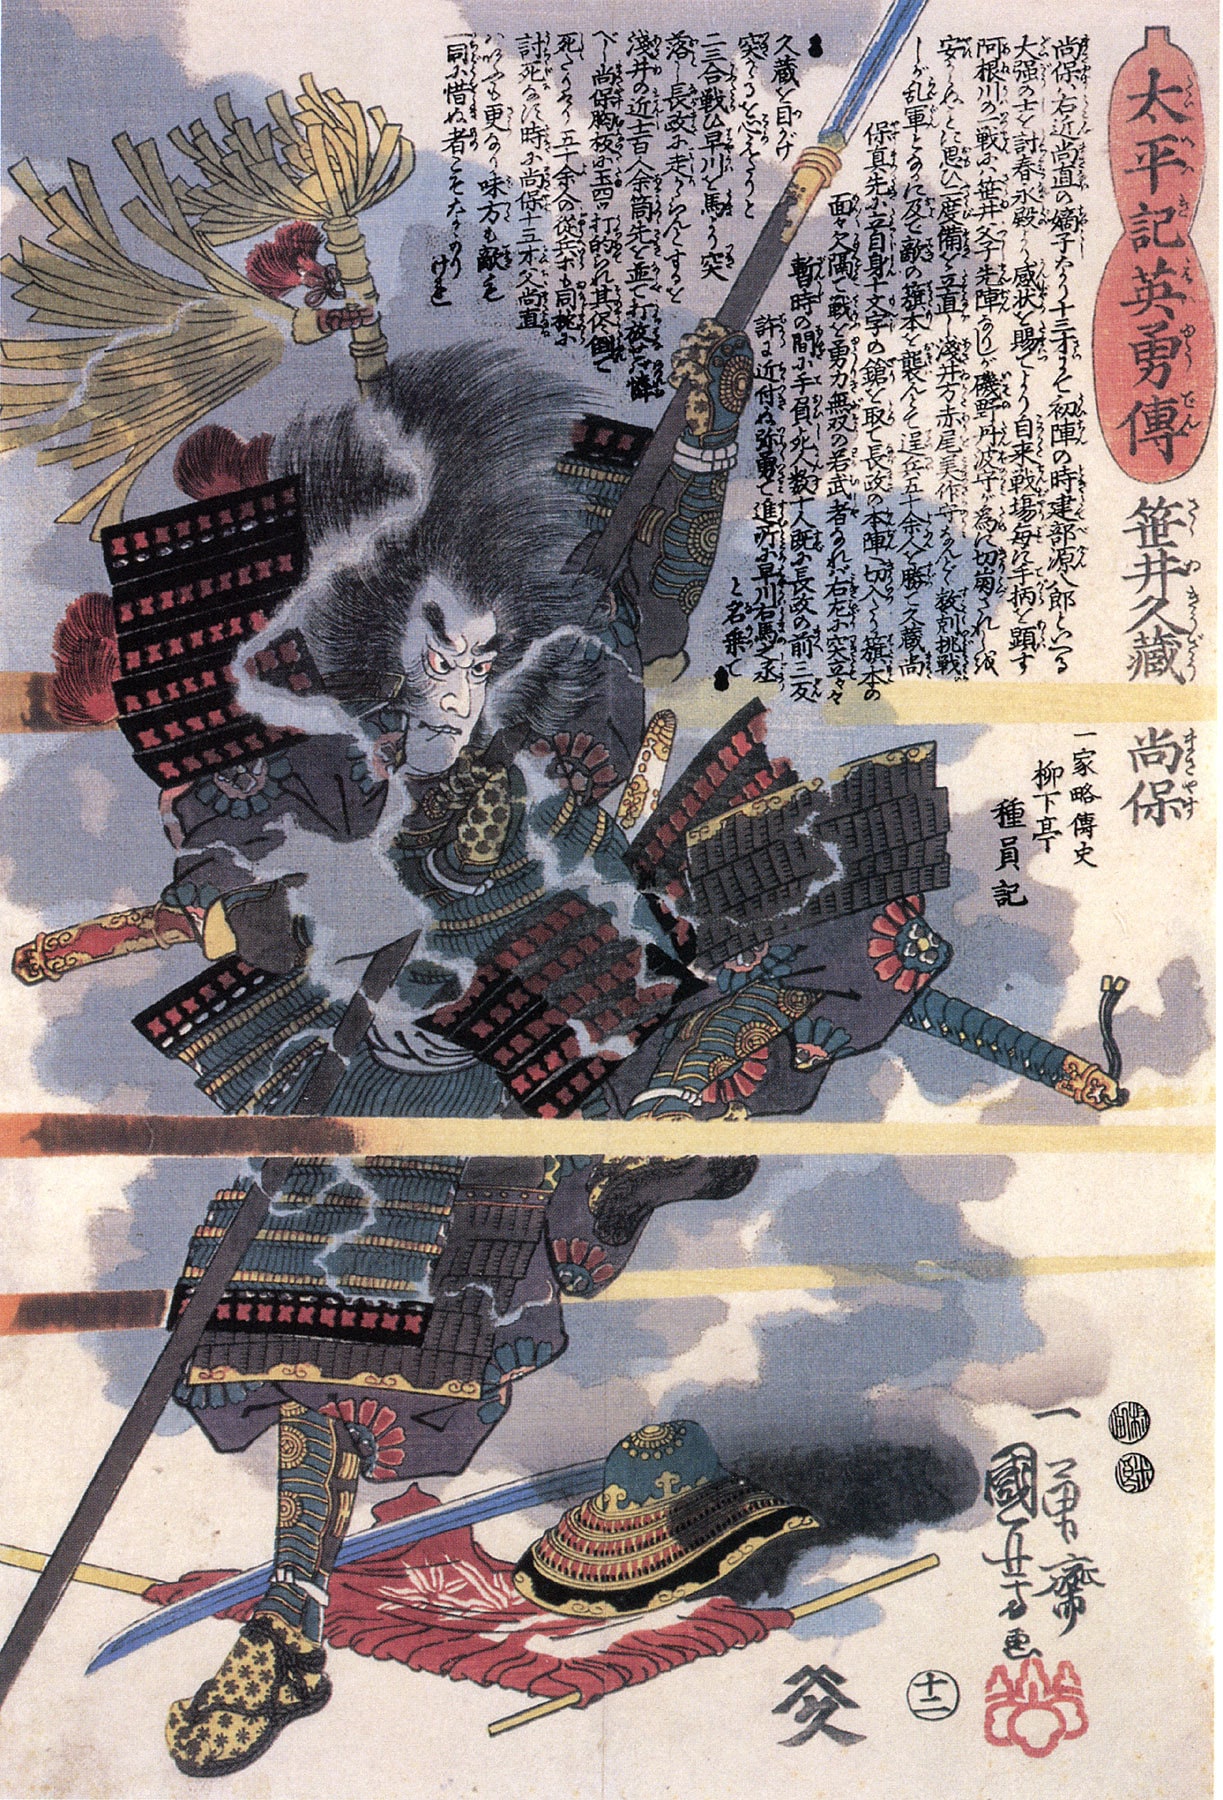 太平記英勇傳
笹井久蔵
尚保
尚保ハ右近尚直の嫡子なり十三才にて初陣の時建部源八郎といへる
大强の士を討春永殿より感状を賜てより自来戦場毎に手柄を顕す
阿根川の一戦に笹井父子先陣なりしが磯野丹波守が為に切崩されしを
安からぬことに思ひ二度備を立直し淺井方赤尾美作守なんど数剋挑戦
しが乱軍となるに及で敵の籏本を襲んと逞兵五十余人勝て久蔵尚
保真先に立自身十文字の鎗を取て長政の本陣へ切入たり籏本の
面々隔て戦を勇力無双の若武者なれバ右左に突立々々
暫時の間に手負死人数十人既に長政の前三反
許に近付ぬ弥勇で進所に早川右馬之丞
と名乗て
久蔵を目がけ
突かゝるを心えたりと
二三合戦ひ早川を馬より突
落し長政に走かゝらんとすると
淺井の近士百人余筒先を並て打放せバ憐
べし尚保胸板に玉四ツ打的られ其侭倒て
死たりける五十余人の従兵等も同枕に
討死なす時に尚保十三才父尚直
ハいふも更なり味方も敵も
一同に惜ぬ者こそなかりけれ
一家略傳史
柳下亭
種員記
一勇齋
國芳画
十二